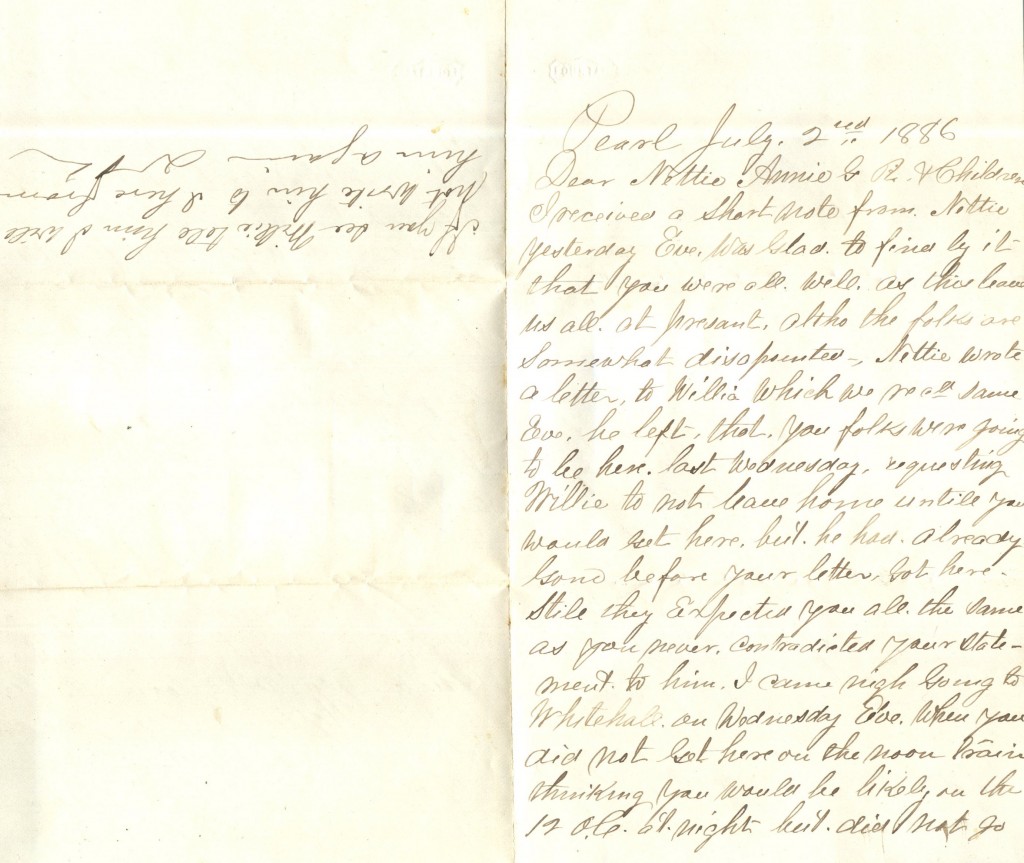 Pearl July, 2nd 1886
Dear Nettie Annie G R. & Children
I received a short note from. Nettie
yesterday Eve, Was Glad. to find by it
that you were all. well. as this leave
us all. at presant. altho the folks are
Somewhat disapointed -, Nettie wrote
a letter, to Willie which we recd. same
Eve. he left, that, you folks were going
to be here. last Wednesday, requesting
Willie to not leave home untile you
would get here. but. he had. already
Gone before your letter, got here -
Stile they Expected you all. the same
as you never. contradicted your state-
ment. to him. I came nigh Going to
Whitehall. on Wednesday Eve. When you
did not Get here on the noon Train
thinking you would be likely on the
12 O.C. at. night but. did not go
if you see Willie tell him I will
not write him to where from
him again